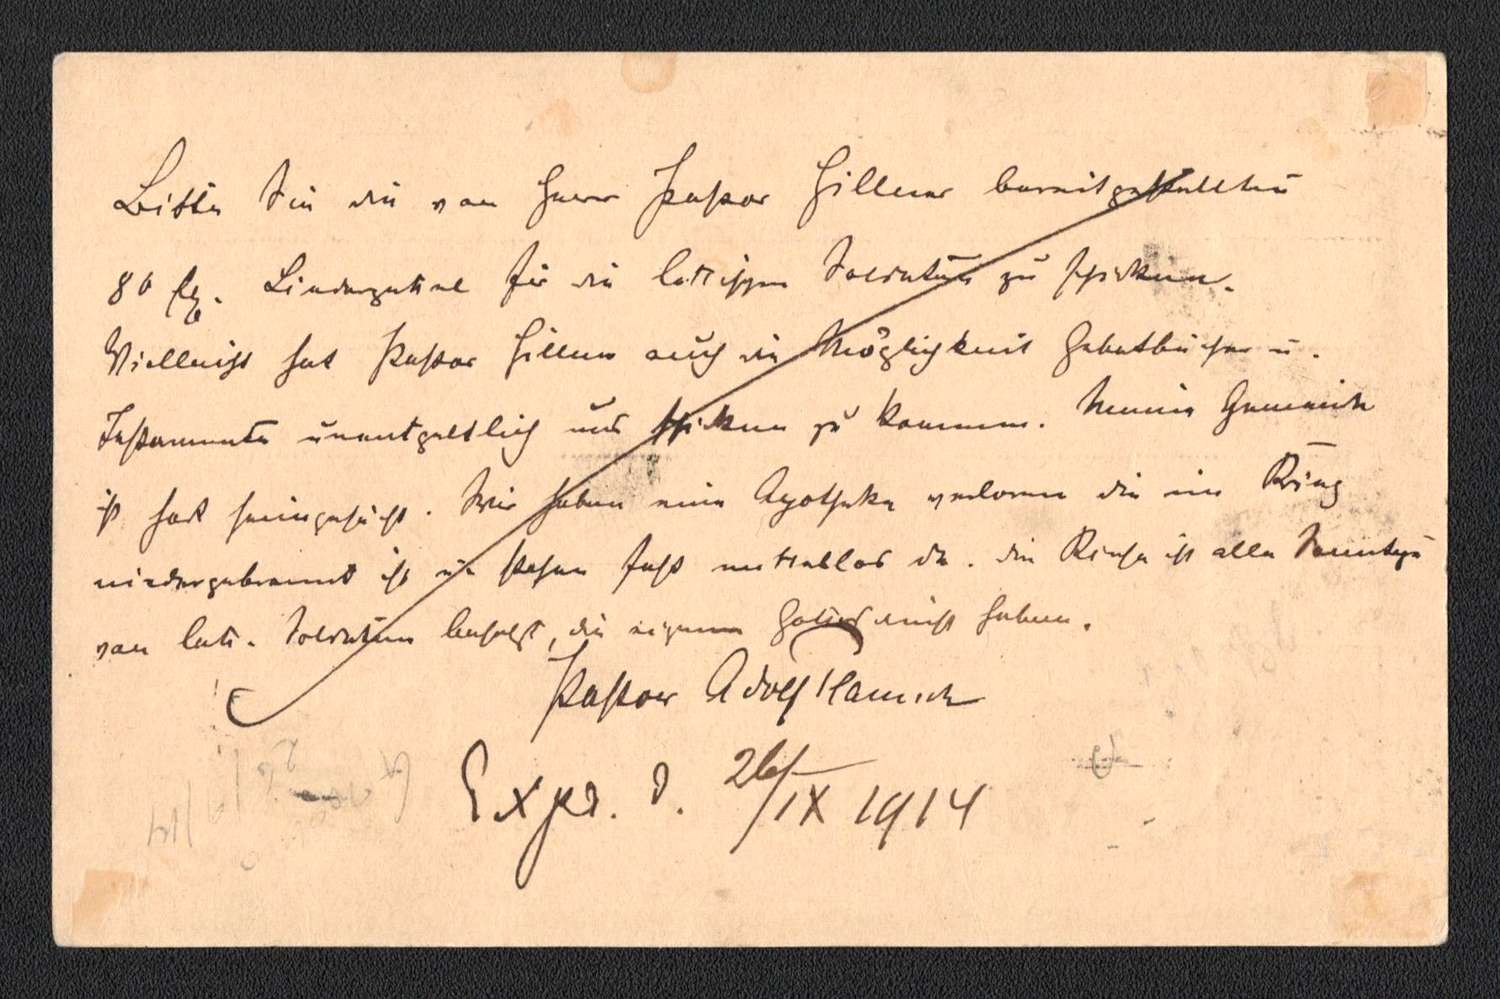 Bitte Sie die von Herr Pastor Hillner bereitgestellten
80 Ex. Liederzettel für die lettischen Soldaten zu schicken.
Vielleicht hat Pastor Hillner auch die Möglichkeit Gebetbücher u.
Testamente unentgeltlich uns schicken zu kommen. Meine Gemeinde
ist hart heimgesucht. Wir haben eine Apotheke verloren die im Krieg
niedergebrannt ist u. stehen fast mittellos da. Die Kirche ist alle Sonntage
von lett. Soldaten besetzt, die eigenen Gottesdienst haben.
Pastor Adolf
Expd. d. 26/IX 1914